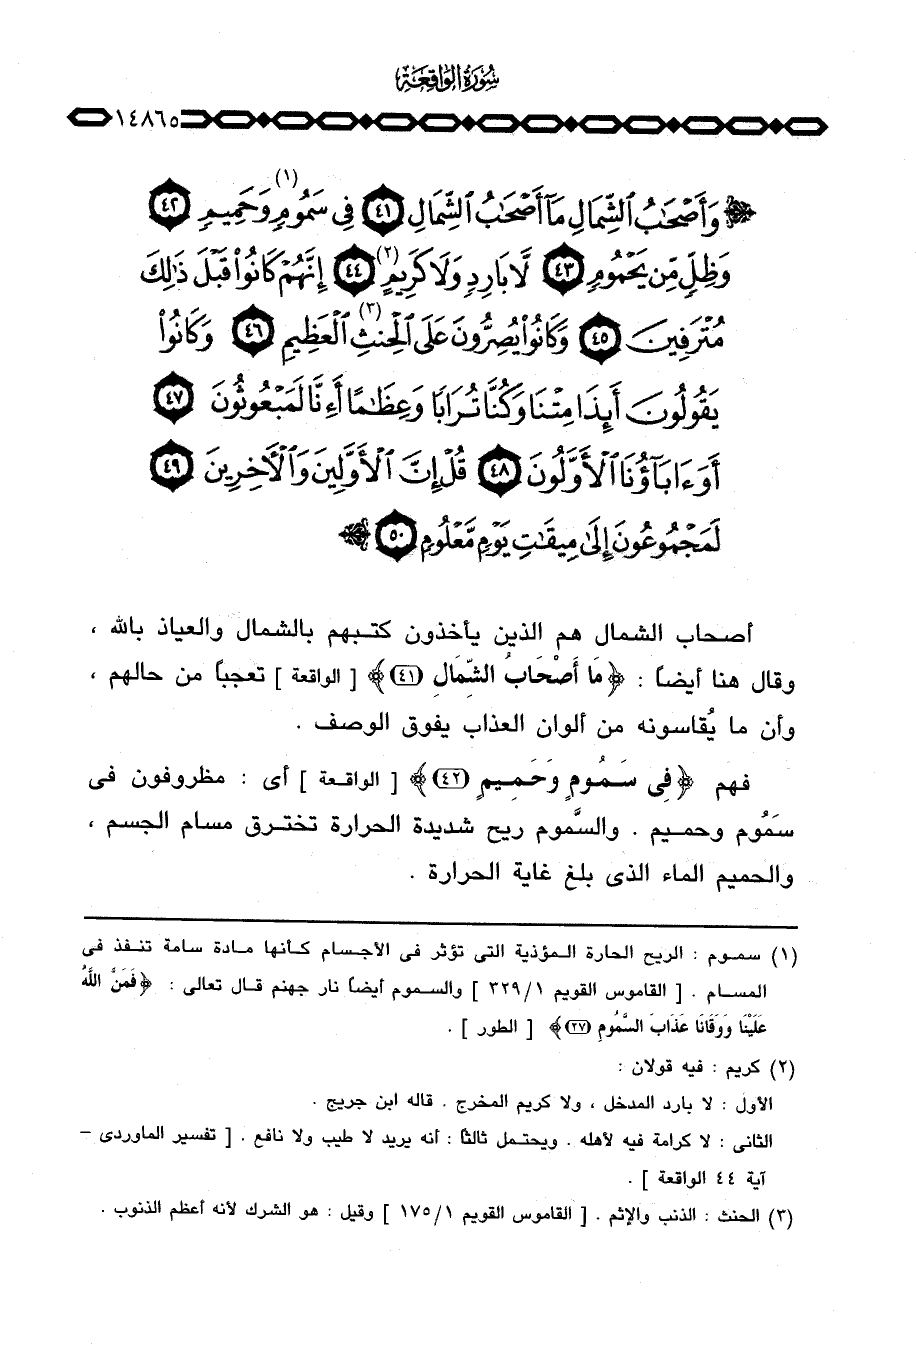 سُورَةُ الوَاقِعَة
١٤٨٦٥
وَأَصْحَٰبُ ٱلشِّمَالِ مَآ أَصْحَٰبُ ٱلشِّمَالِ ٤١ فِى سَمُومٍ (١) وَحَمِيمٍ ٤٢
وَظِلٍّ مِّن يَحْمُومٍ ٤٣ لَّا بَارِدٍ وَلَا كَرِيمٍ (٢) ٤٤ إِنَّهُمْ كَانُوا۟ قَبْلَ ذَٰلِكَ
مُتْرَفِينَ ٤٥ وَكَانُوا۟ يُصِرُّونَ عَلَى ٱلْحِنثِ (٣) ٱلْعَظِيمِ ٤٦ وَكَانُوا۟
يَقُولُونَ أَئِذَا مِتْنَا وَكُنَّا تُرَابًا وَعِظَٰمًا أَءِنَّا لَمَبْعُوثُونَ ٤٧
أَوَءَابَآؤُنَا ٱلْأَوَّلُونَ ٤٨ قُلْ إِنَّ ٱلْأَوَّلِينَ وَٱلْءَاخِرِينَ ٤٩
لَمَجْمُوعُونَ إِلَىٰ مِيقَٰتِ يَوْمٍ مَّعْلُومٍ ٥٠
أصحاب الشمال هم الذين يأخذون كتبهم بالشمال والعياذ بالله ،
وقال هنا أيضاً : ﴿ مَا أَصْحَابُ الشِّمَالِ (٤١) ﴾ [ الواقعة ] تعجباً من حالهم ،
وأن ما يُقاسونه من ألوان العذاب يفوق الوصف .
فهم ﴿ فِى سَمُومٍ وَحَمِيمٍ (٤٢) ﴾ [ الواقعة ] أى : مظروفون فى
سَمُوم وحميم . والسَّموم ريح شديدة الحرارة تخترق مسام الجسم ،
والحميم الماء الذى بلغ غاية الحرارة .
(١) سموم : الريح الحارة المؤذية التى تؤثر فى الأجسام كأنها مادة سامة تنفذ فى
المسام . [ القاموس القويم ٣٢٩/١ ] والسموم أيضاً نار جهنم قال تعالى : ﴿ فَمَنَّ اللَّهُ
عَلَيْنَا وَوَقَانَا عَذَابَ السَّمُومِ (٢٧) ﴾ [ الطور ] .
(٢) كريم : فيه قولان :
الأول : لا بارد المدخل ، ولا كريم المخرج . قاله ابن جريج .
الثانى : لا كرامة فيه لأهله . ويحتمل ثالثاً : أنه يريد لا طيب ولا نافع . [ تفسير الماوردى -
آية ٤٤ الواقعة ] .
(٣) الحنث : الذنب والإثم . [ القاموس القويم ١٧٥/١ ] وقيل : هو الشرك لأنه أعظم الذنوب .